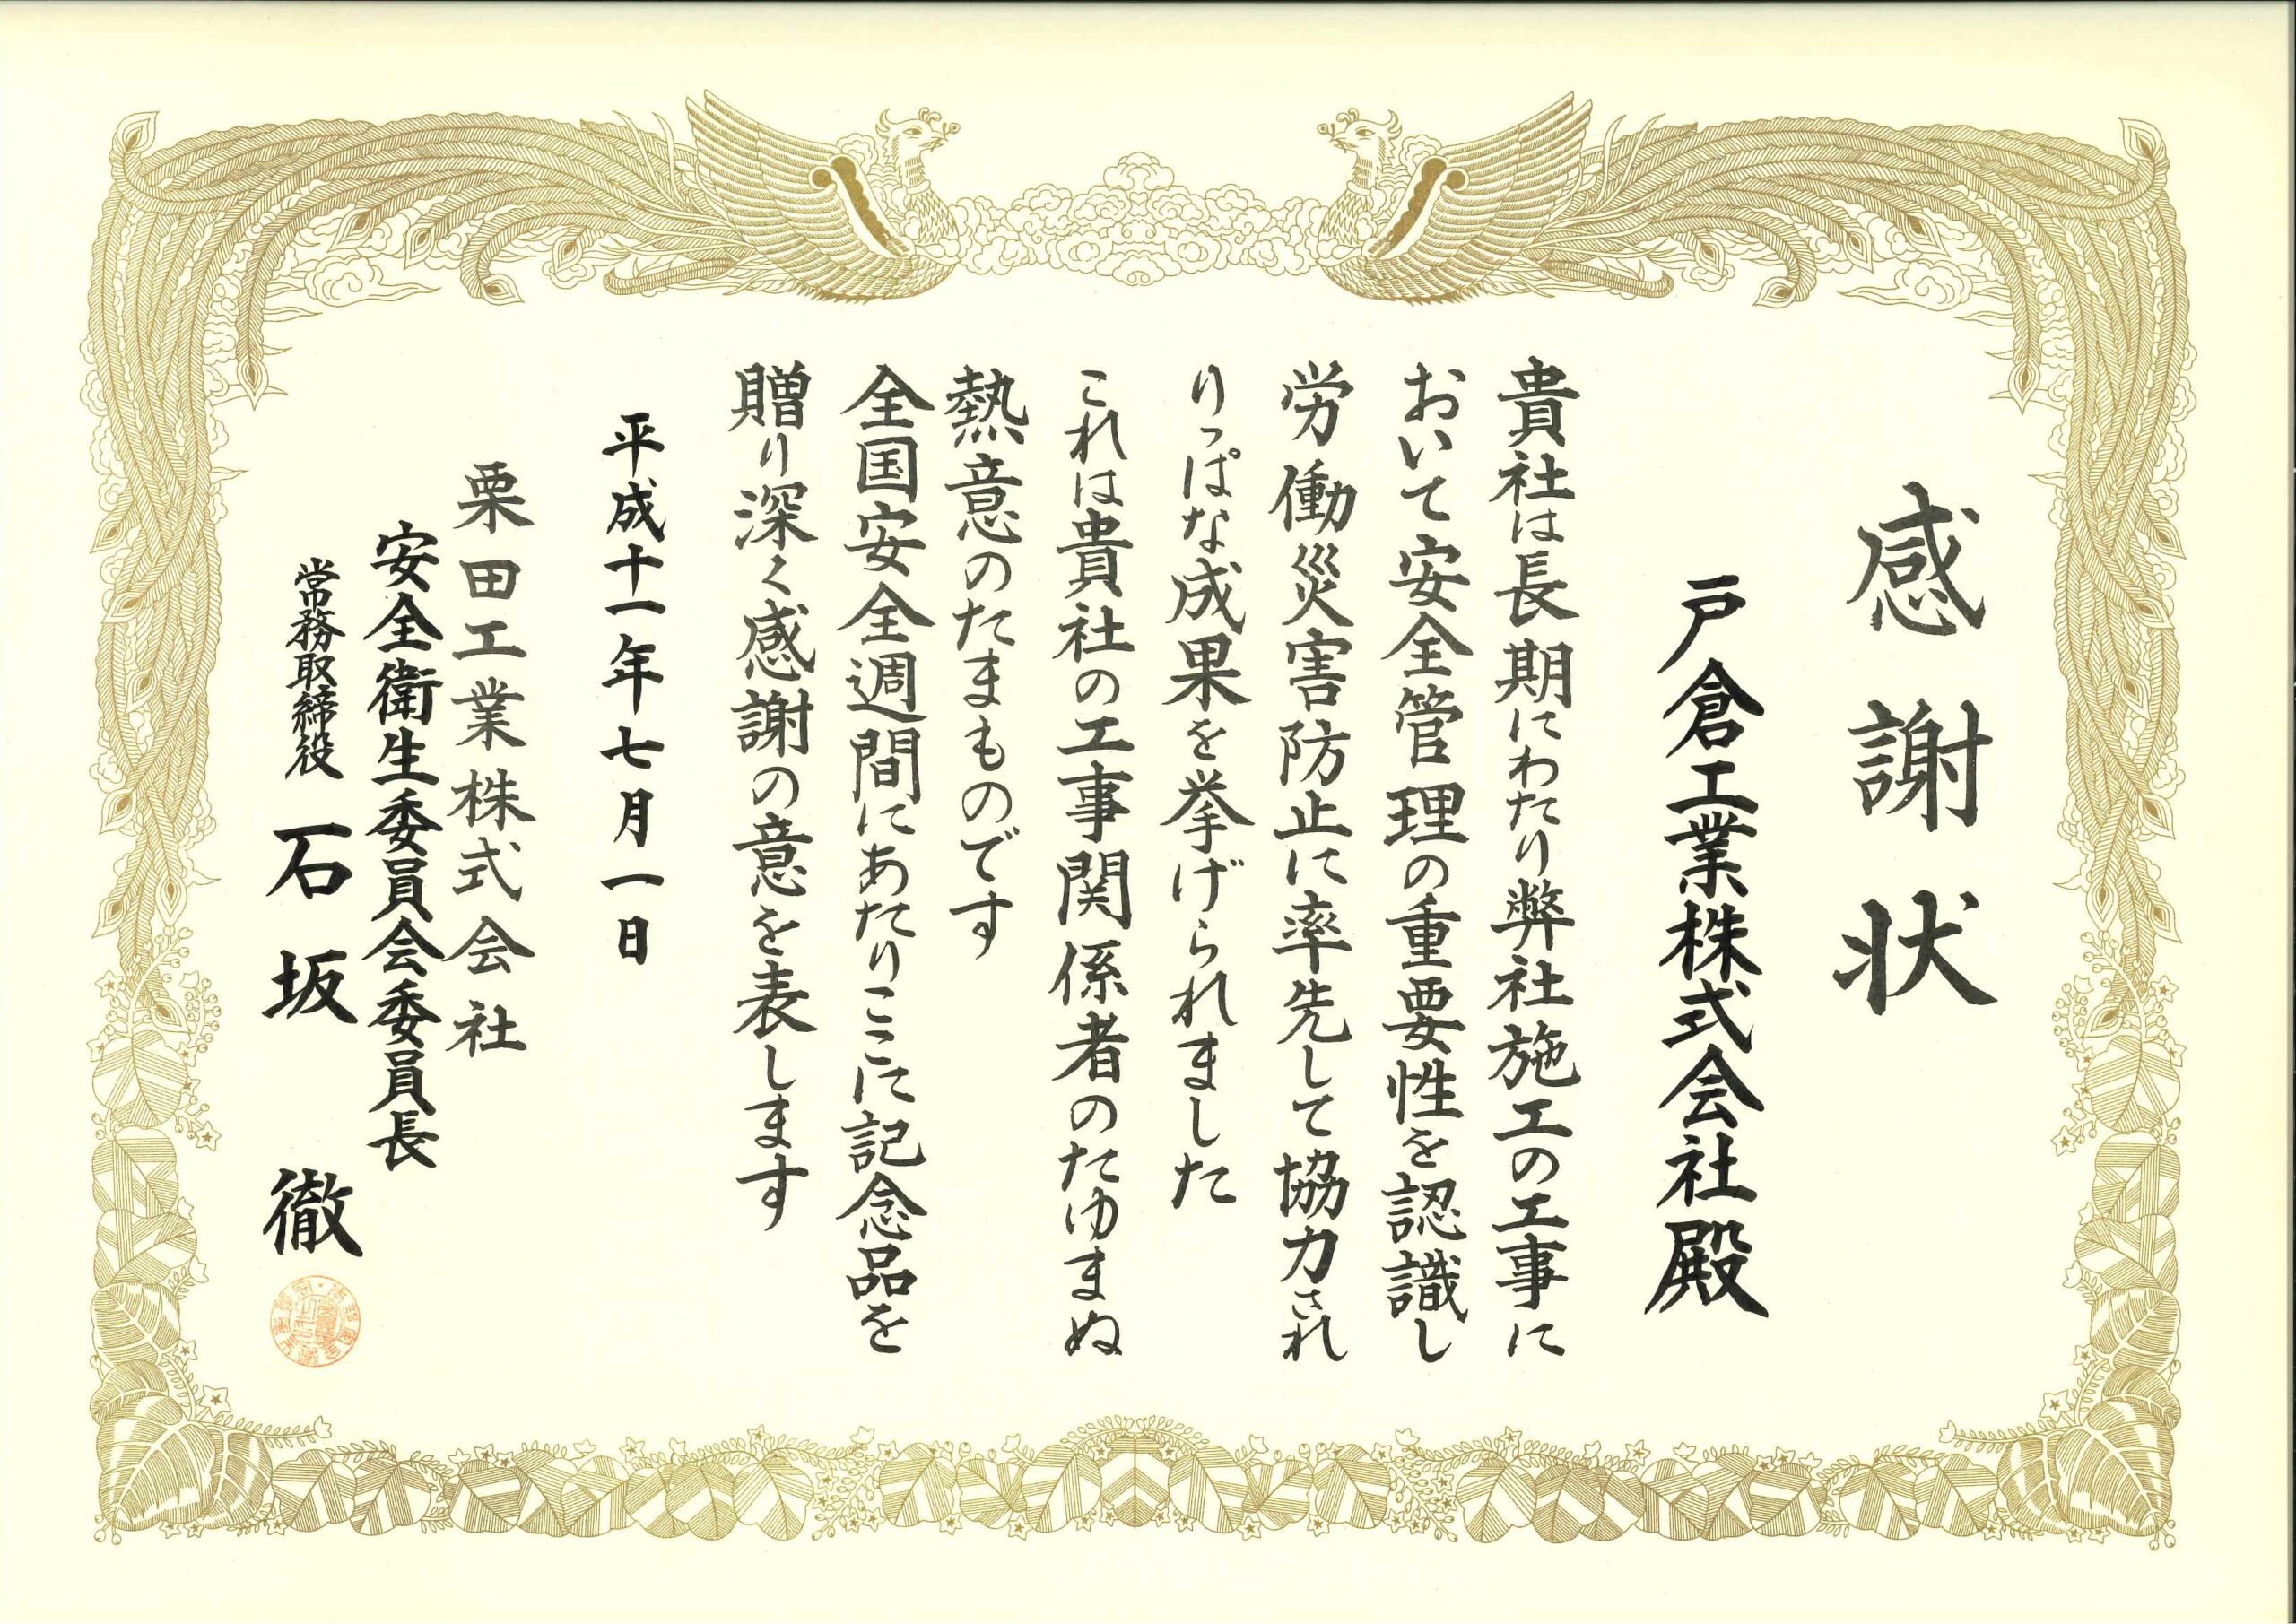 感謝状
戸倉工業株式会社殿
貴社は長期にわたり弊社施工の工事に
おいて安全管理の重要性を認識し
労働災害防止に率先して協力され
りっぱな成果を挙げられました
これは貴社の工事関係者のたゆまぬ
熱意のたまものです
全国安全週間にあたりここに記念品を
贈り深く感謝の意を表します
平成十一年七月一日
栗田工業株式会社
安全衛生委員会委員長
常務取締役 石坂 徹